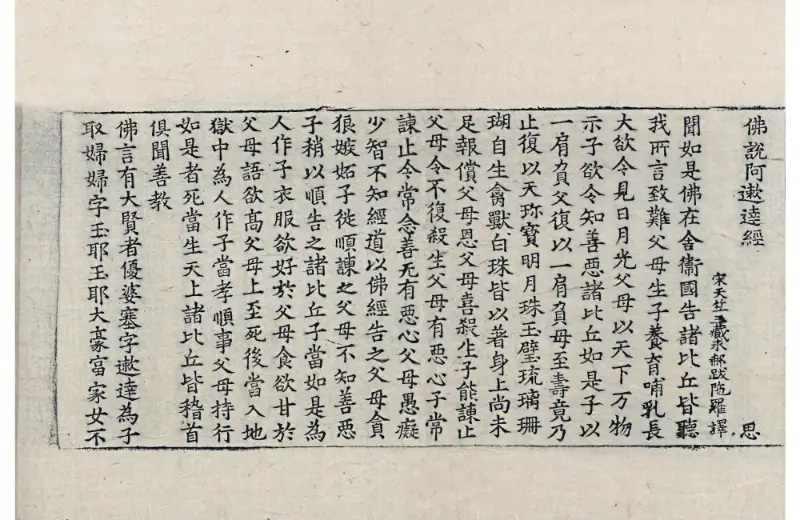 佛說阿遬達經　　思
宋天竺三藏求那跋陁羅譯
聞如是佛在舍衛國告諸比丘皆聽
我所言致難父母生子養育哺乳長
大欲令見日月光父母以天下万物
示子欲令知善惡諸比丘如是子以
一肩負父復以一肩負母至壽竟乃
止復以天珎寶明月珠玉璧琉璃珊
瑚自生禽獸白珠皆以著身上尚未
足報償父母恩父母喜殺生子能諫止
父母令不復殺生父母有惡心子常
諫止令常念善无有惡心父母愚癡
少智不知經道以佛經告之父母貪
狼嫉妬子從順諫之父母不知善惡
子稍以順告之諸比丘子當如是為
人作子衣服欲好於父母食欲甘於
父母語欲高父母上至死後當入地
獄中為人作子當孝順事父母持行
如是者死當生天上諸比丘皆稽首
俱聞善教
佛言有大賢者優婆塞字遬達為子
取婦婦字玉耶玉耶大豪富家女不